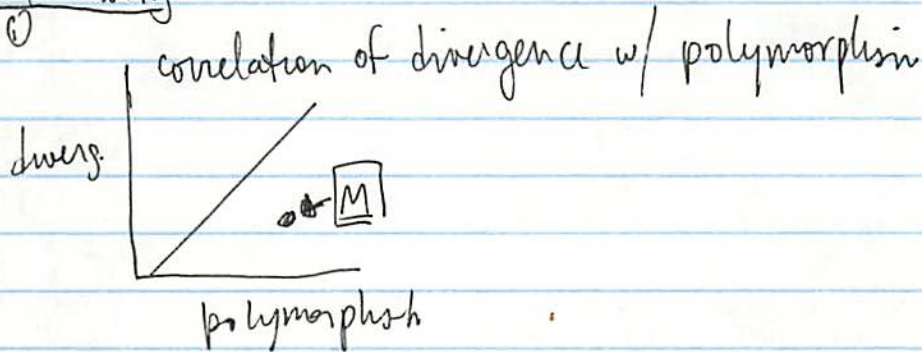 ①
correlation of divergence w/ polymorphism
diverg.
M
polymorphism